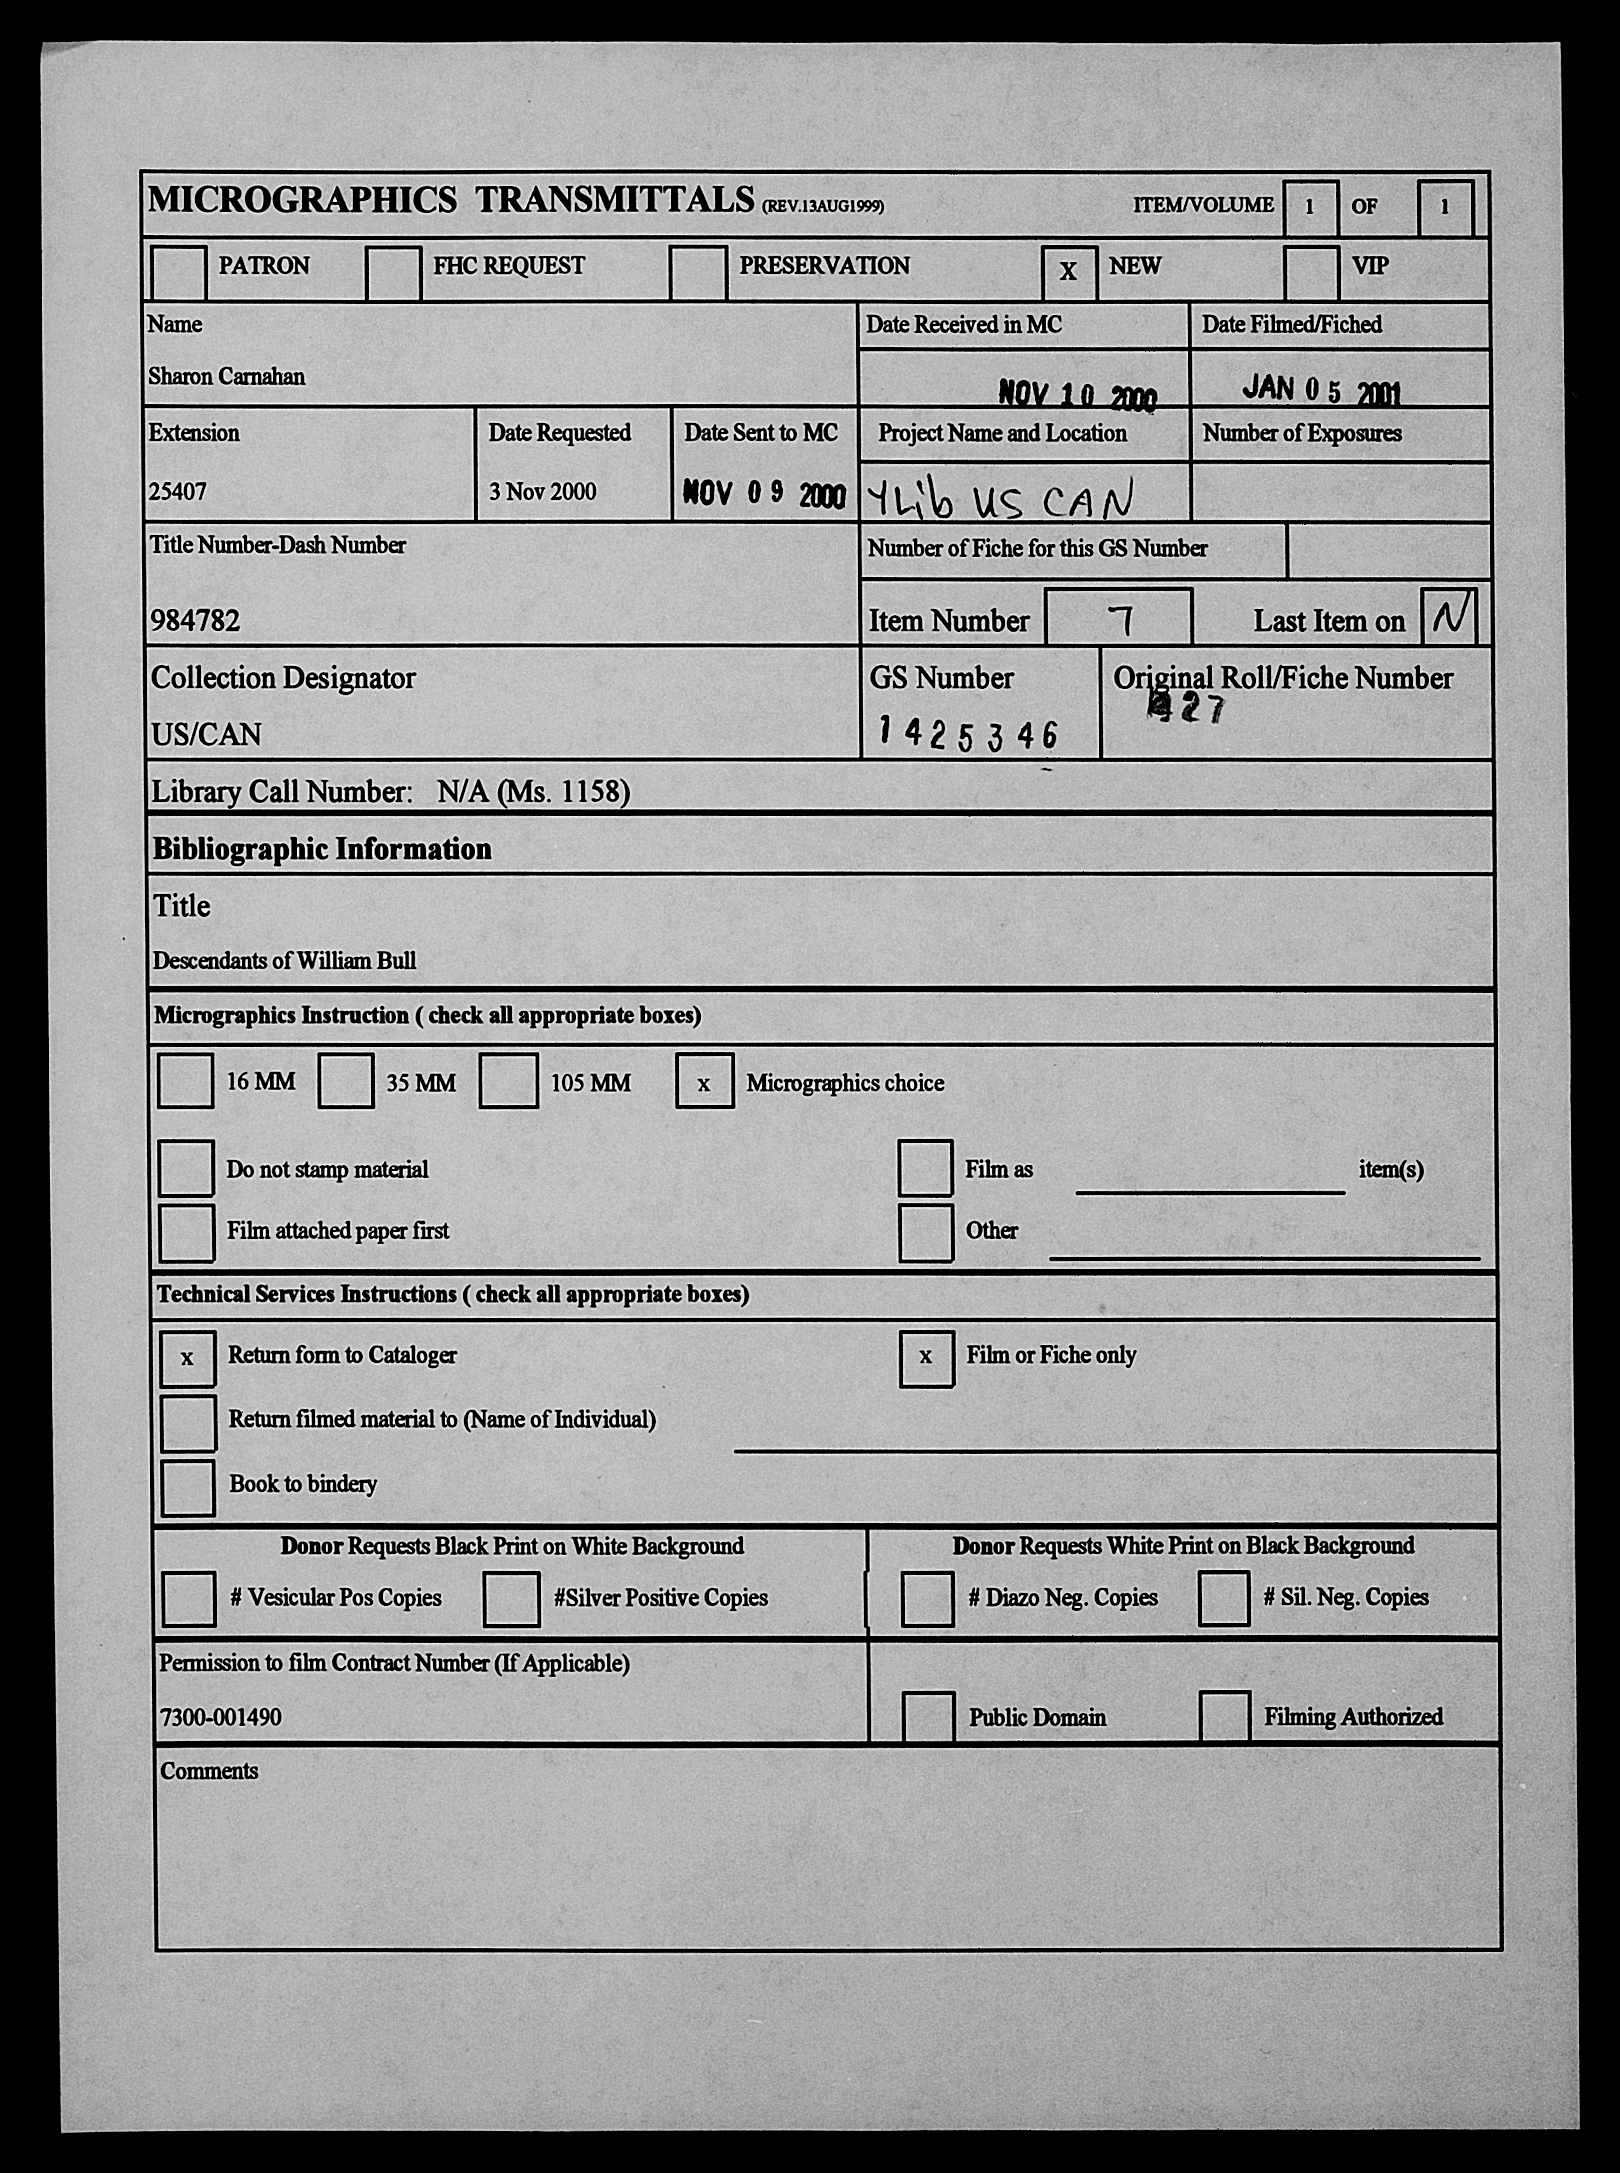 MICROGRAPHICS TRANSMITTALS (REV.13AUG1999) ITEM/VOLUME 1 OF 1
PATRON FHC REQUEST PRESERVATION X NEW VIP
Name Date Received in MC Date Filmed/Fiched
Sharon Carnahan NOV 10 2000 JAN 05 2001
Extension Date Requested Date Sent to MC Project Name and Location Number of Exposures
25407 3 Nov 2000 NOV 09 2000 YLib US CAN
Title Number-Dash Number Number of Fiche for this GS Number
984782 Item Number 7 Last Item on N
Collection Designator GS Number Original Roll/Fiche Number
US/CAN 1425346 27
Library Call Number: N/A (Ms. 1158)
Bibliographic Information
Title
Descendants of William Bull
Micrographics Instruction ( check all appropriate boxes)
16 MM 35 MM 105 MM x Micrographics choice
Do not stamp material Film as item(s)
Film attached paper first Other
Technical Services Instructions ( check all appropriate boxes)
x Return form to Cataloger x Film or Fiche only
Return filmed material to (Name of Individual)
Book to bindery
Donor Requests Black Print on White Background Donor Requests White Print on Black Background
# Vesicular Pos Copies #Silver Positive Copies # Diazo Neg. Copies # Sil. Neg. Copies
Permission to film Contract Number (If Applicable)
7300-001490 Public Domain Filming Authorized
Comments